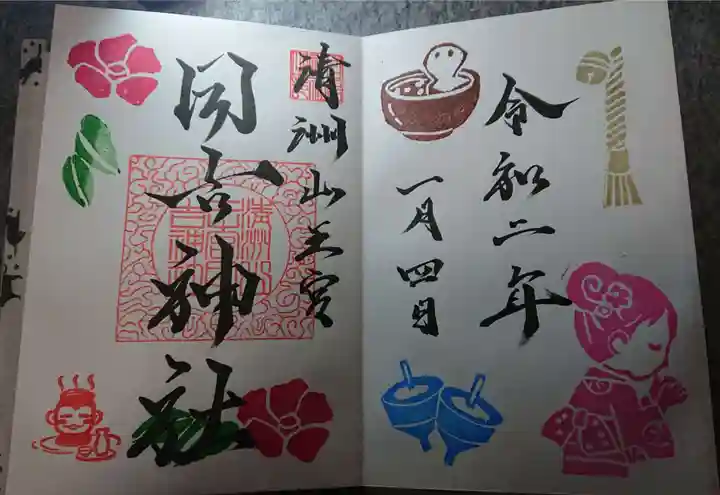 令和二年
一月四日
清洲山王宮
日吉神社